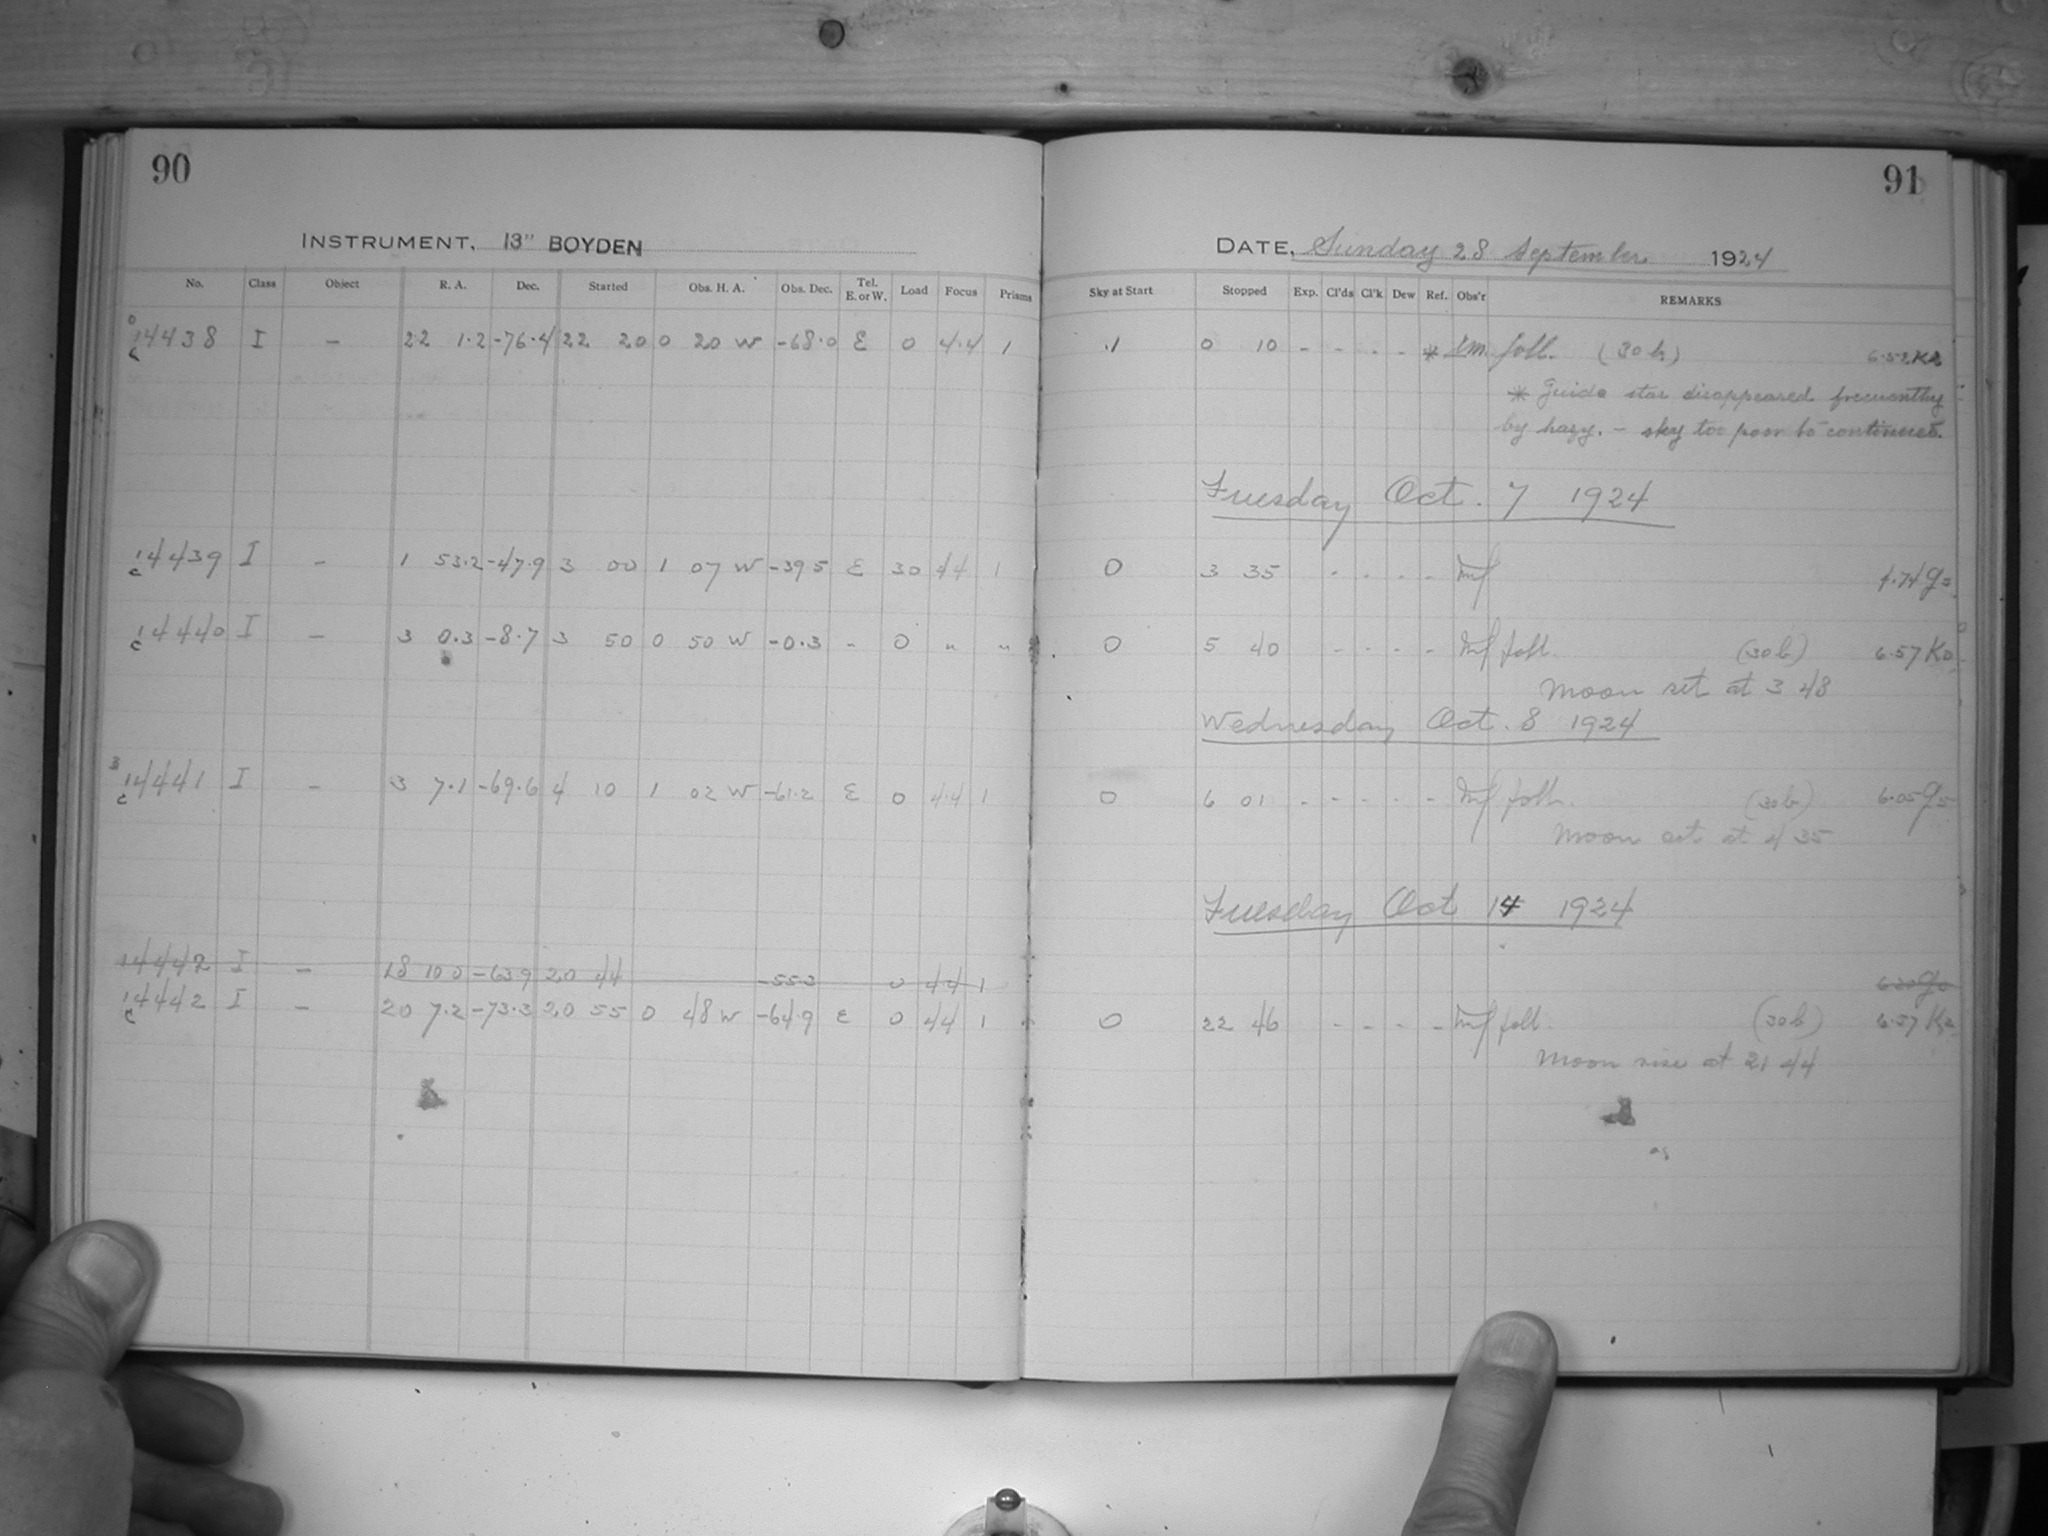 90
INSTRUMENT. 13" BOYDEN
No. Class Object R. A. Dec. Started Obs. H. A. Obs. Dec. Tel. E. or W. Load Focus Prisms
14438 I - 22 1.2 -76.4 22 20 0 20 W -68.0 E 0 4.4 1
c
14439 I - 1 53.2 -47.9 3 00 1 07 W -39 5 E 30 44 1
c
14440 I - 3 0.3 -8.7 3 50 0 50 W -0.3 - 0 " "
c
14441 I - 3 7.1 -69.6 4 10 1 02 W -61.2 E 0 4.4 1
c
14442 I - 18 10 0 -63 9 20 44 -55 2 0 44 1
14442 I - 20 7.2 -73.3 20 55 0 48 W -64.9 E 0 44 1
c
91
DATE, Sunday 28 September 1924
Sky at Start Stopped Exp. Cl'ds Cl'k Dew Ref. Obs'r REMARKS
.1 0 10 - - - - * foll. (30 b)
* Guide star disappeared frequently
by hazy. - sky too poor to continued.
Tuesday Oct. 7 1924
0 3 35 - - - - mf
0 5 40 - - - - mf foll. (30 b) 6.57 K2
Moon set at 3 48
Wednesday Oct. 8 1924
0 6 01 - - - - - mf foll. (30 b) 6.05 G5
Moon set at 4 35
Tuesday Oct 14 1924
0 22 46 - - - - mf foll. (30 b) 6.57 K2
Moon rise at 21 44